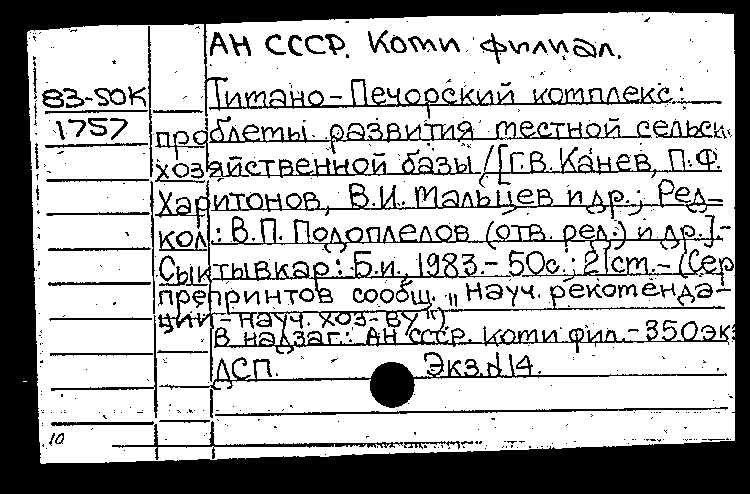 АН СССР. Коми филиал.
83-50К
1757
Тимано-Печорский комплекс:
проблемы развития местной сельск.
хозяйственной базы /[Г.В. Канев, П.Ф.
Харитонов, В.И. Мальцев и др.; Ред-
кол.: В.П. Подоплелов (отв. ред.) и др.].-
Сыктывкар: Б.и., 1983.- 50с.; 21см.- (Сер
препринтов сообщ. „Науч. рекоменда-
ции - науч. хоз-ву")
В надзаг.: АН СССР. Коми фил.- 350экз
ДСП. Экз.N14.
10